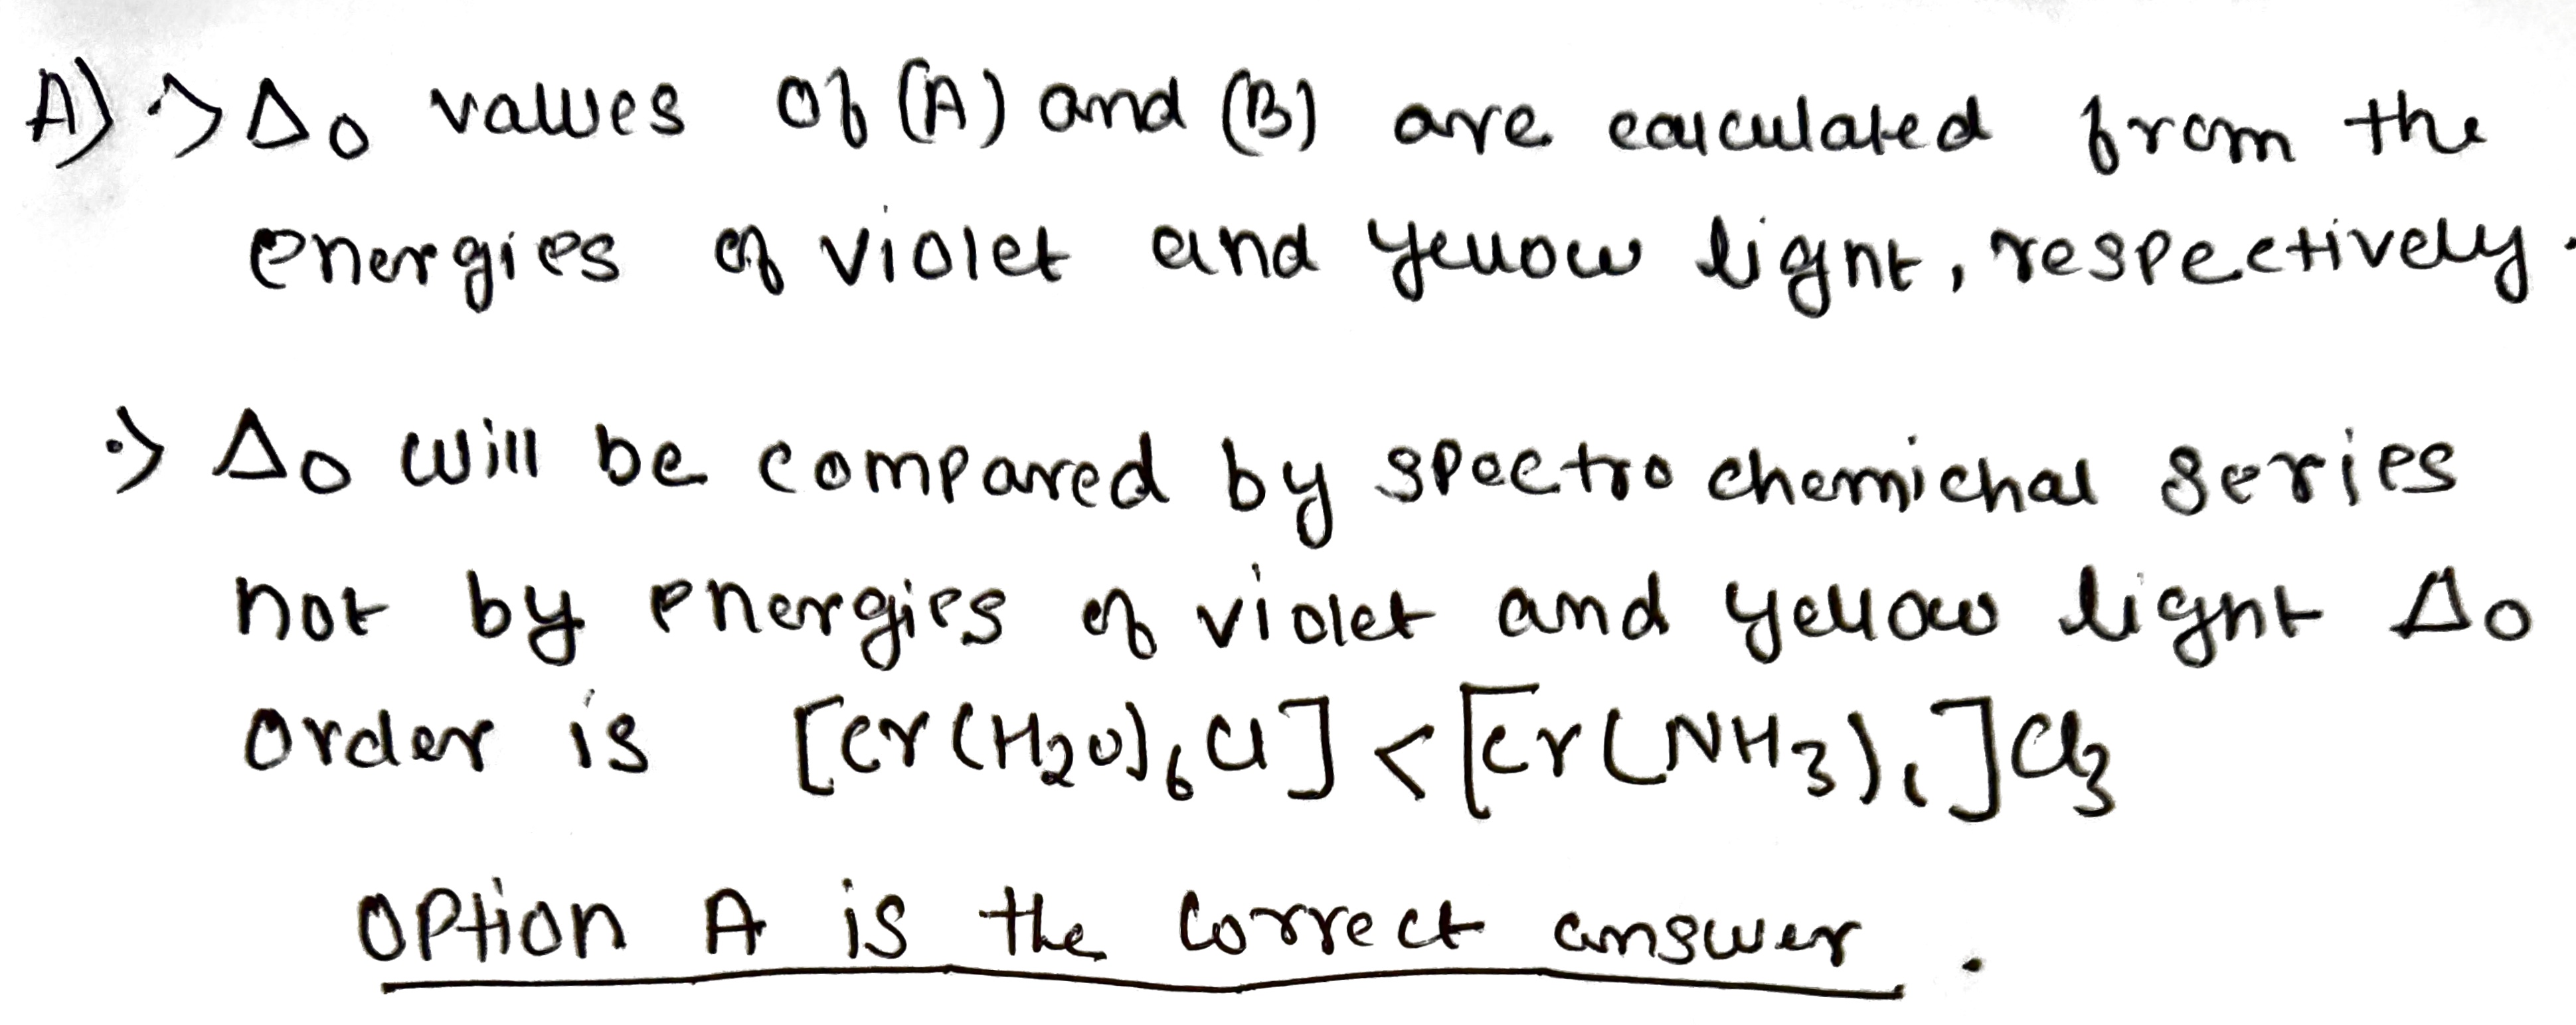 A) :> Δo values of (A) and (B) are calculated from the
energies of violet and yellow light, respectively.
:> Δo will be compared by spectro chemichal series
not by energies of violet and yellow light Δo
order is [Cr(H2O)6Cl] < [Cr(NH3)6]Cl3
Option A is the correct answer.